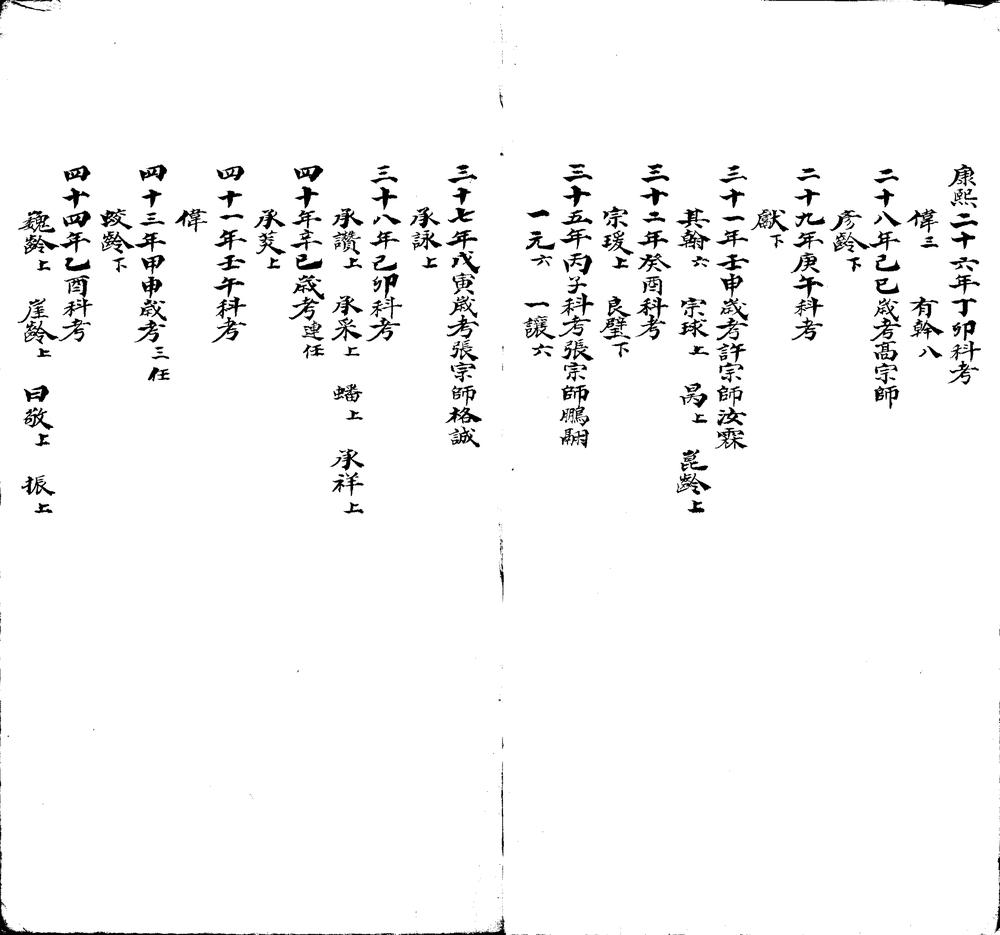 康熙二十六年丁卯科考
偉三 有幹八
二十八年己巳歲考高宗師
彥齡下
二十九年庚午科考
獻下
三十一年壬申歲考許宗師汝霖
其翰六 宗球上 昺上 崑齡上
三十二年癸酉科考
宗瑗上 良璧下
三十五年丙子科考張宗師鵬翮
一元六 一讓六
三十七年戊寅歲考張宗師格誠
承詠上
三十八年己卯科考
承讚上 承采上 蟠上 承祥上
四十年辛巳歲考連任
承芺上
四十一年壬午科考
偉
四十三年甲申歲考三任
蛟齡下
四十四年乙酉科考
巍齡上 崖齡上 曰敬上 振上